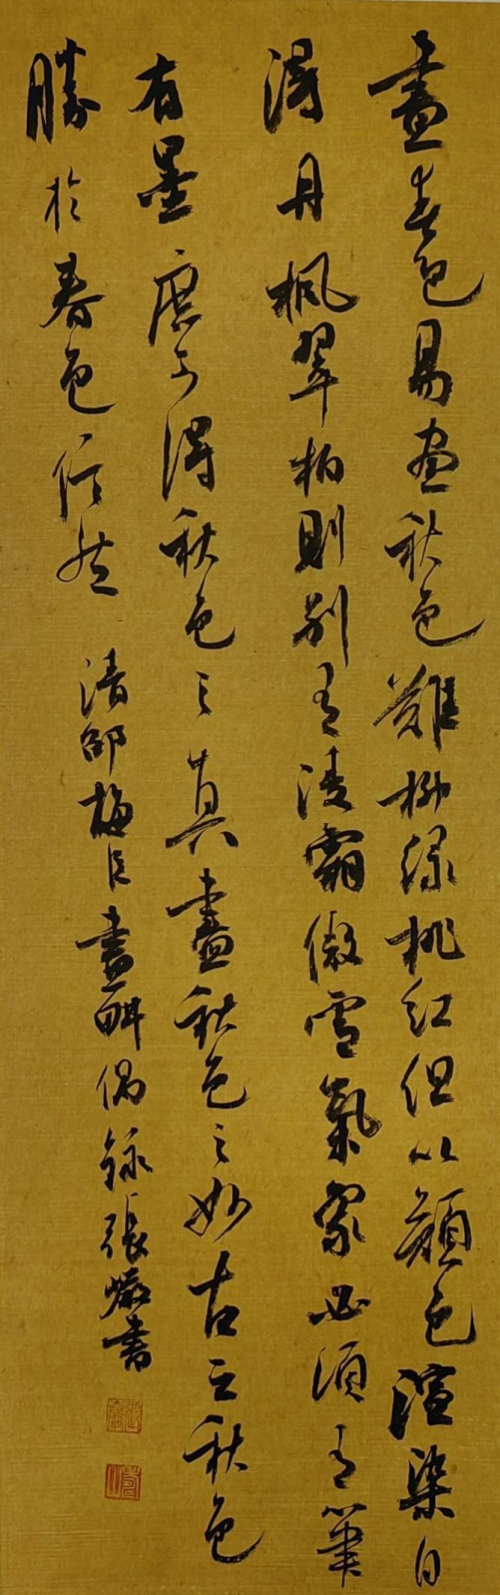 畫春色易画秋色難柳綠桃紅但以顏色渲染自
得丹楓翠柏則別有淩霜傲雪氣象必須有筆
有墨庶可得秋色之真畫秋色之妙古云秋色
勝於春色信然 清邵梅臣畫耕偶錄張書